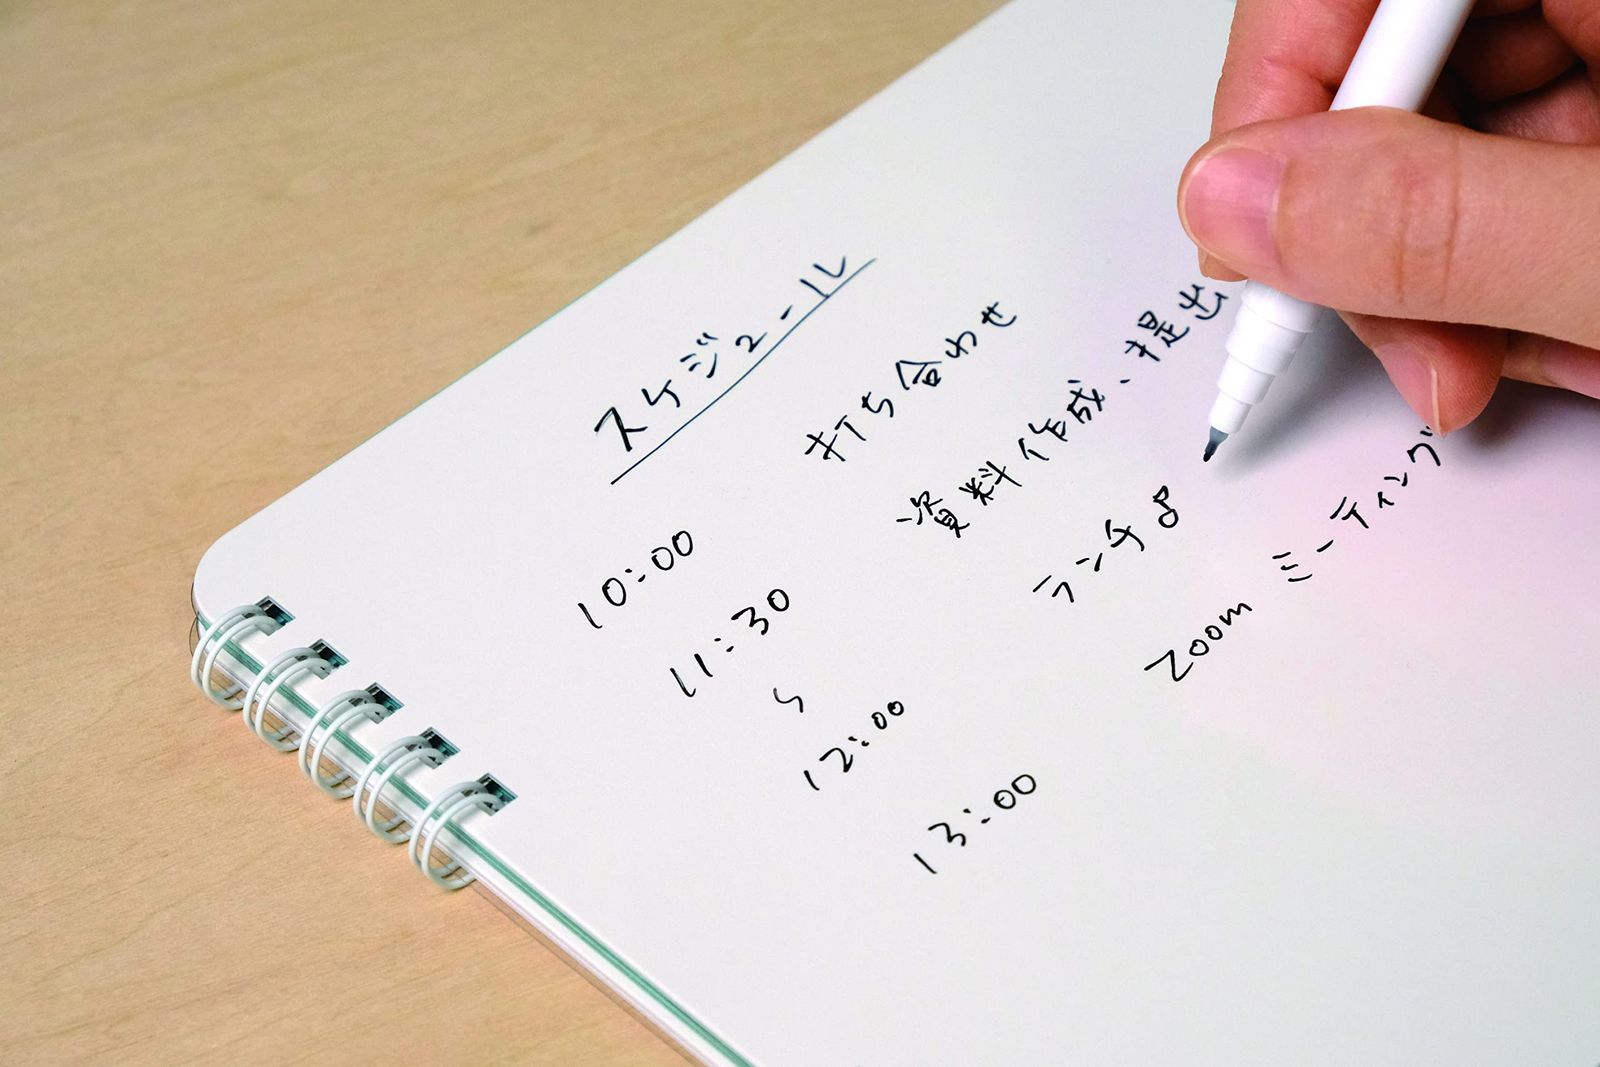 スケジュール
10:00 打ち合わせ
11:30 資料作成、提出
〜
12:00 ランチ
13:00 Zoom ミーティング